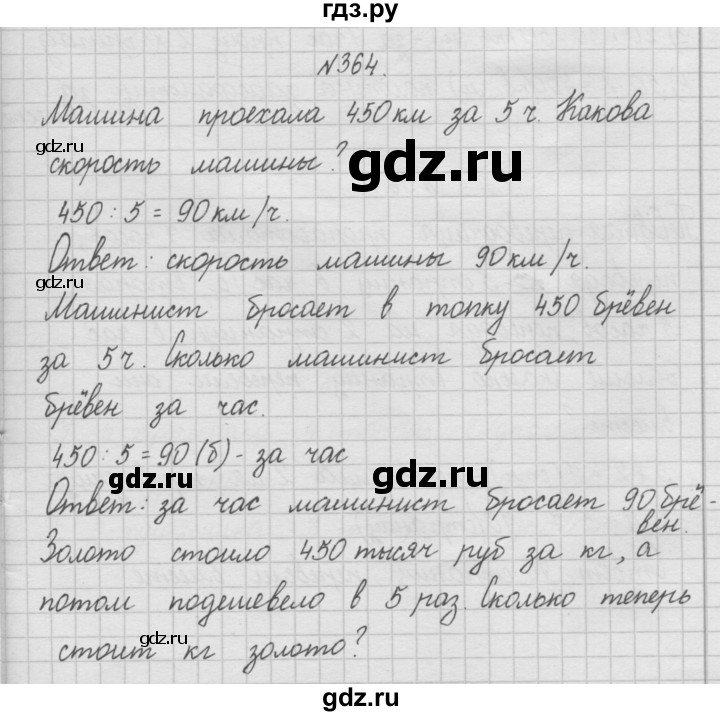 гдз.ру
№364.
Машина проехала 450 км за 5 ч. Какова
gdz.ru
gdz.ru
скорость машины?
450 : 5 = 90 км/ч.
gdz.ru
Ответ: скорость машины 90 км/ч.
gdz.ru
Машинист бросает в топку 450 брёвен
за 5 ч. Сколько машинист бросает
gdz.ru
брёвен за час.
450 : 5 = 90 (б) - за час
gdz.ru
gdz.ru
Ответ: за час машинист бросает 90 брё-
вен.
gdz.ru
Золото стоило 450 тысяч руб за кг, а
gdz.ru
потом подешевело в 5 раз. Сколько теперь
gdz.ru
стоит кг золото?
gdz.ru
gdz.ru